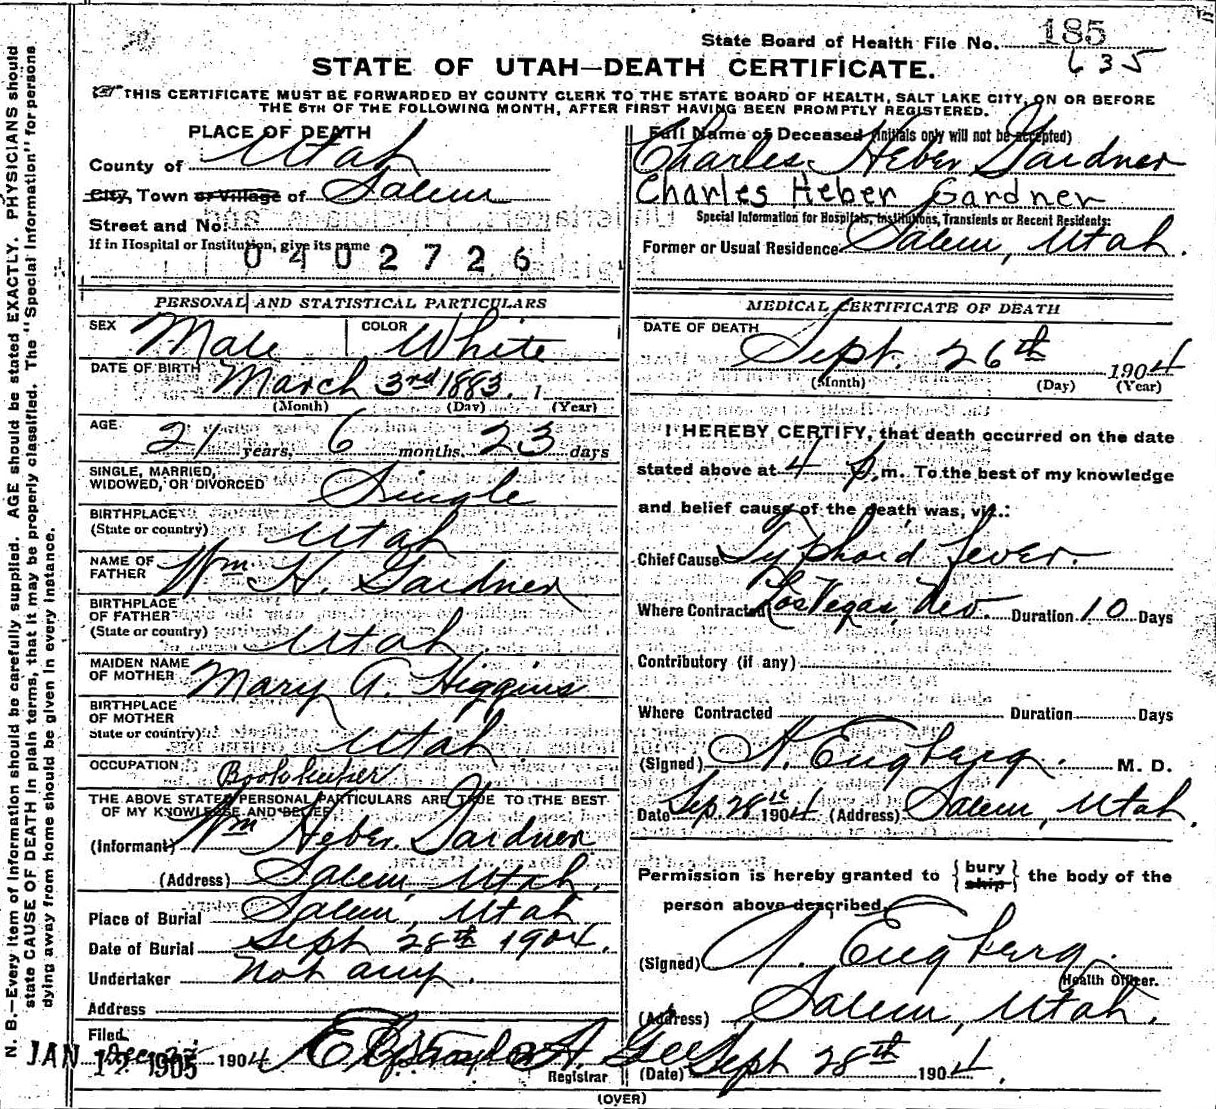 State Board of Health File No. 185
635
STATE OF UTAH—DEATH CERTIFICATE.
THIS CERTIFICATE MUST BE FORWARDED BY COUNTY CLERK TO THE STATE BOARD OF HEALTH, SALT LAKE CITY, ON OR BEFORE
THE 5TH OF THE FOLLOWING MONTH, AFTER FIRST HAVING BEEN PROMPTLY REGISTERED.
PLACE OF DEATH
County of Utah
City, Town or Village of Salem
Street and No.
If in Hospital or Institution, give its name
0402726
PERSONAL AND STATISTICAL PARTICULARS
SEX Male COLOR White
DATE OF BIRTH March 3rd 1883. 1
(Month) (Day) (Year)
AGE 21 years, 6 months, 23 days
SINGLE, MARRIED,
WIDOWED, OR DIVORCED Single
BIRTHPLACE
(State or country) Utah
NAME OF
FATHER Wm H. Gardner
BIRTHPLACE
OF FATHER
(State or country) Utah
MAIDEN NAME
OF MOTHER Mary A. Higgins
BIRTHPLACE
OF MOTHER
State or country) Utah
OCCUPATION Bookkeeper
THE ABOVE STATED PERSONAL PARTICULARS ARE TRUE TO THE BEST
OF MY KNOWLEDGE AND BELIEF
(Informant) Wm Heber Gardner
(Address) Salem Utah.
Place of Burial Salem, Utah
Date of Burial Sept 28th 1904.
Undertaker Not any.
Address
Filed 1904
JAN 1905
Registrar
Full Name of Deceased (Initials only will not be accepted)
Charles Heber Gardner
Charles Heber Gardner
Special Information for Hospitals, Institutions, Transients or Recent Residents:
Former or Usual Residence Salem, Utah.
MEDICAL CERTIFICATE OF DEATH
DATE OF DEATH
Sept. 26th 1904
(Month) (Day) (Year)
I HEREBY CERTIFY, that death occurred on the date
stated above at 4 P.m. To the best of my knowledge
and belief cause of the death was, viz.:
Chief Cause Typhoid fever.
Where Contracted Los Vegas, Nev. Duration 10 Days
Contributory (if any)
Where Contracted Duration Days
(Signed) A. Engberg. M. D.
Date Sep. 28th 1904 (Address) Salem, Utah.
Permission is hereby granted to { bury ship } the body of the
person above described.
(Signed) A. Engberg.
Health Officer.
(Address) Salem, Utah.
(Date) Sept 28th 1904.
(OVER)
N. B.—Every item of Information should be carefully supplied. AGE should be stated EXACTLY. PHYSICIANS should
state CAUSE OF DEATH in plain terms, that it may be properly classified. The "Special Information" for persons
dying away from home should be given in every instance.